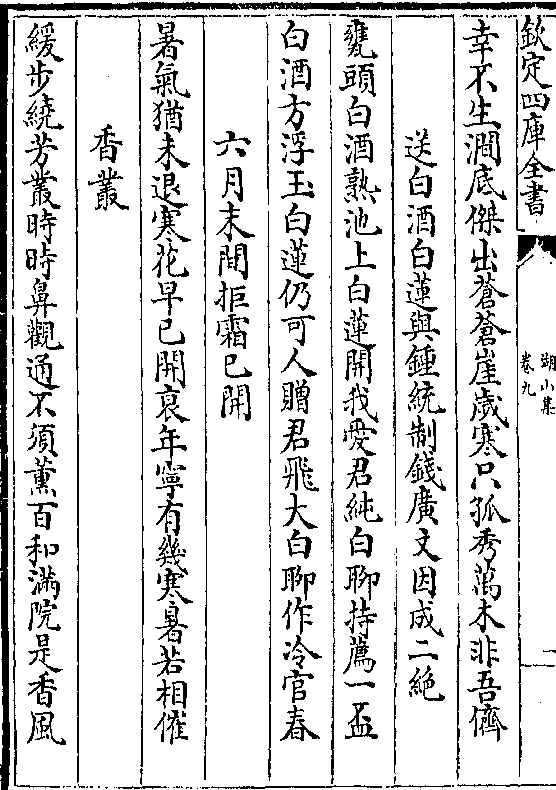 欽定四庫全書
湖山集
卷九
一
幸不生澗底傑出蒼蒼崖歲寒只孤秀萬木非吾儕
送白酒白蓮與鍾統制錢廣文因成二絶
甕頭白酒熟池上白蓮開我愛君純白聊持薦一盃
白酒方浮玉白蓮仍可人贈君飛大白聊作冷官春
六月末間拒霜已開
暑氣猶未退寒花早已開衰年寧有幾寒暑若相催
香叢
緩步繞芳叢時時鼻觀通不須薰百和滿院是香風